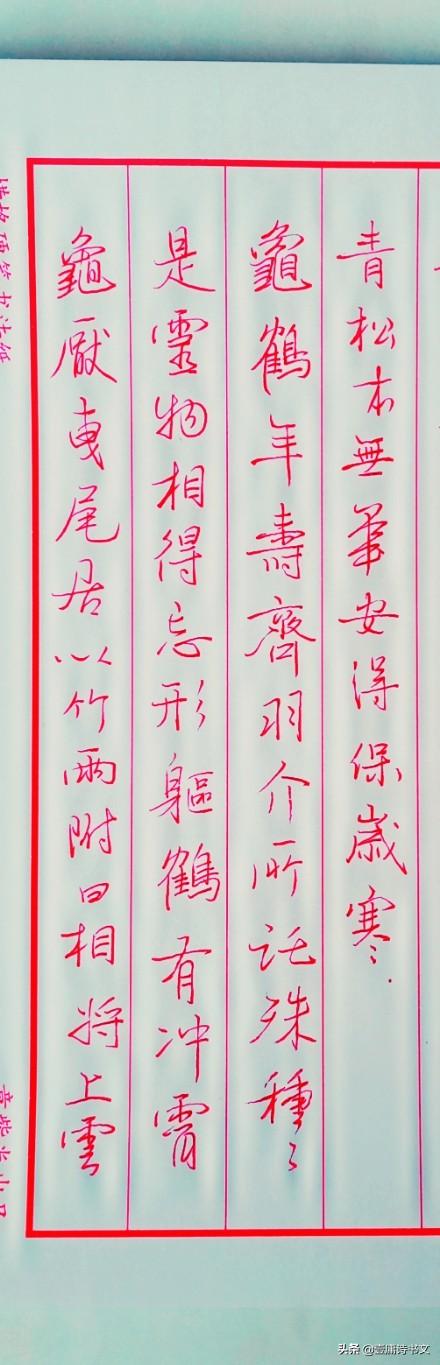 青松本無華安得保歲寒
龜鶴年壽齊羽介所託殊種〻
是靈物相得忘形軀鶴有沖霄
龜厭曳尾居以竹兩附口相將上雲
头条 @壹脯诗书文